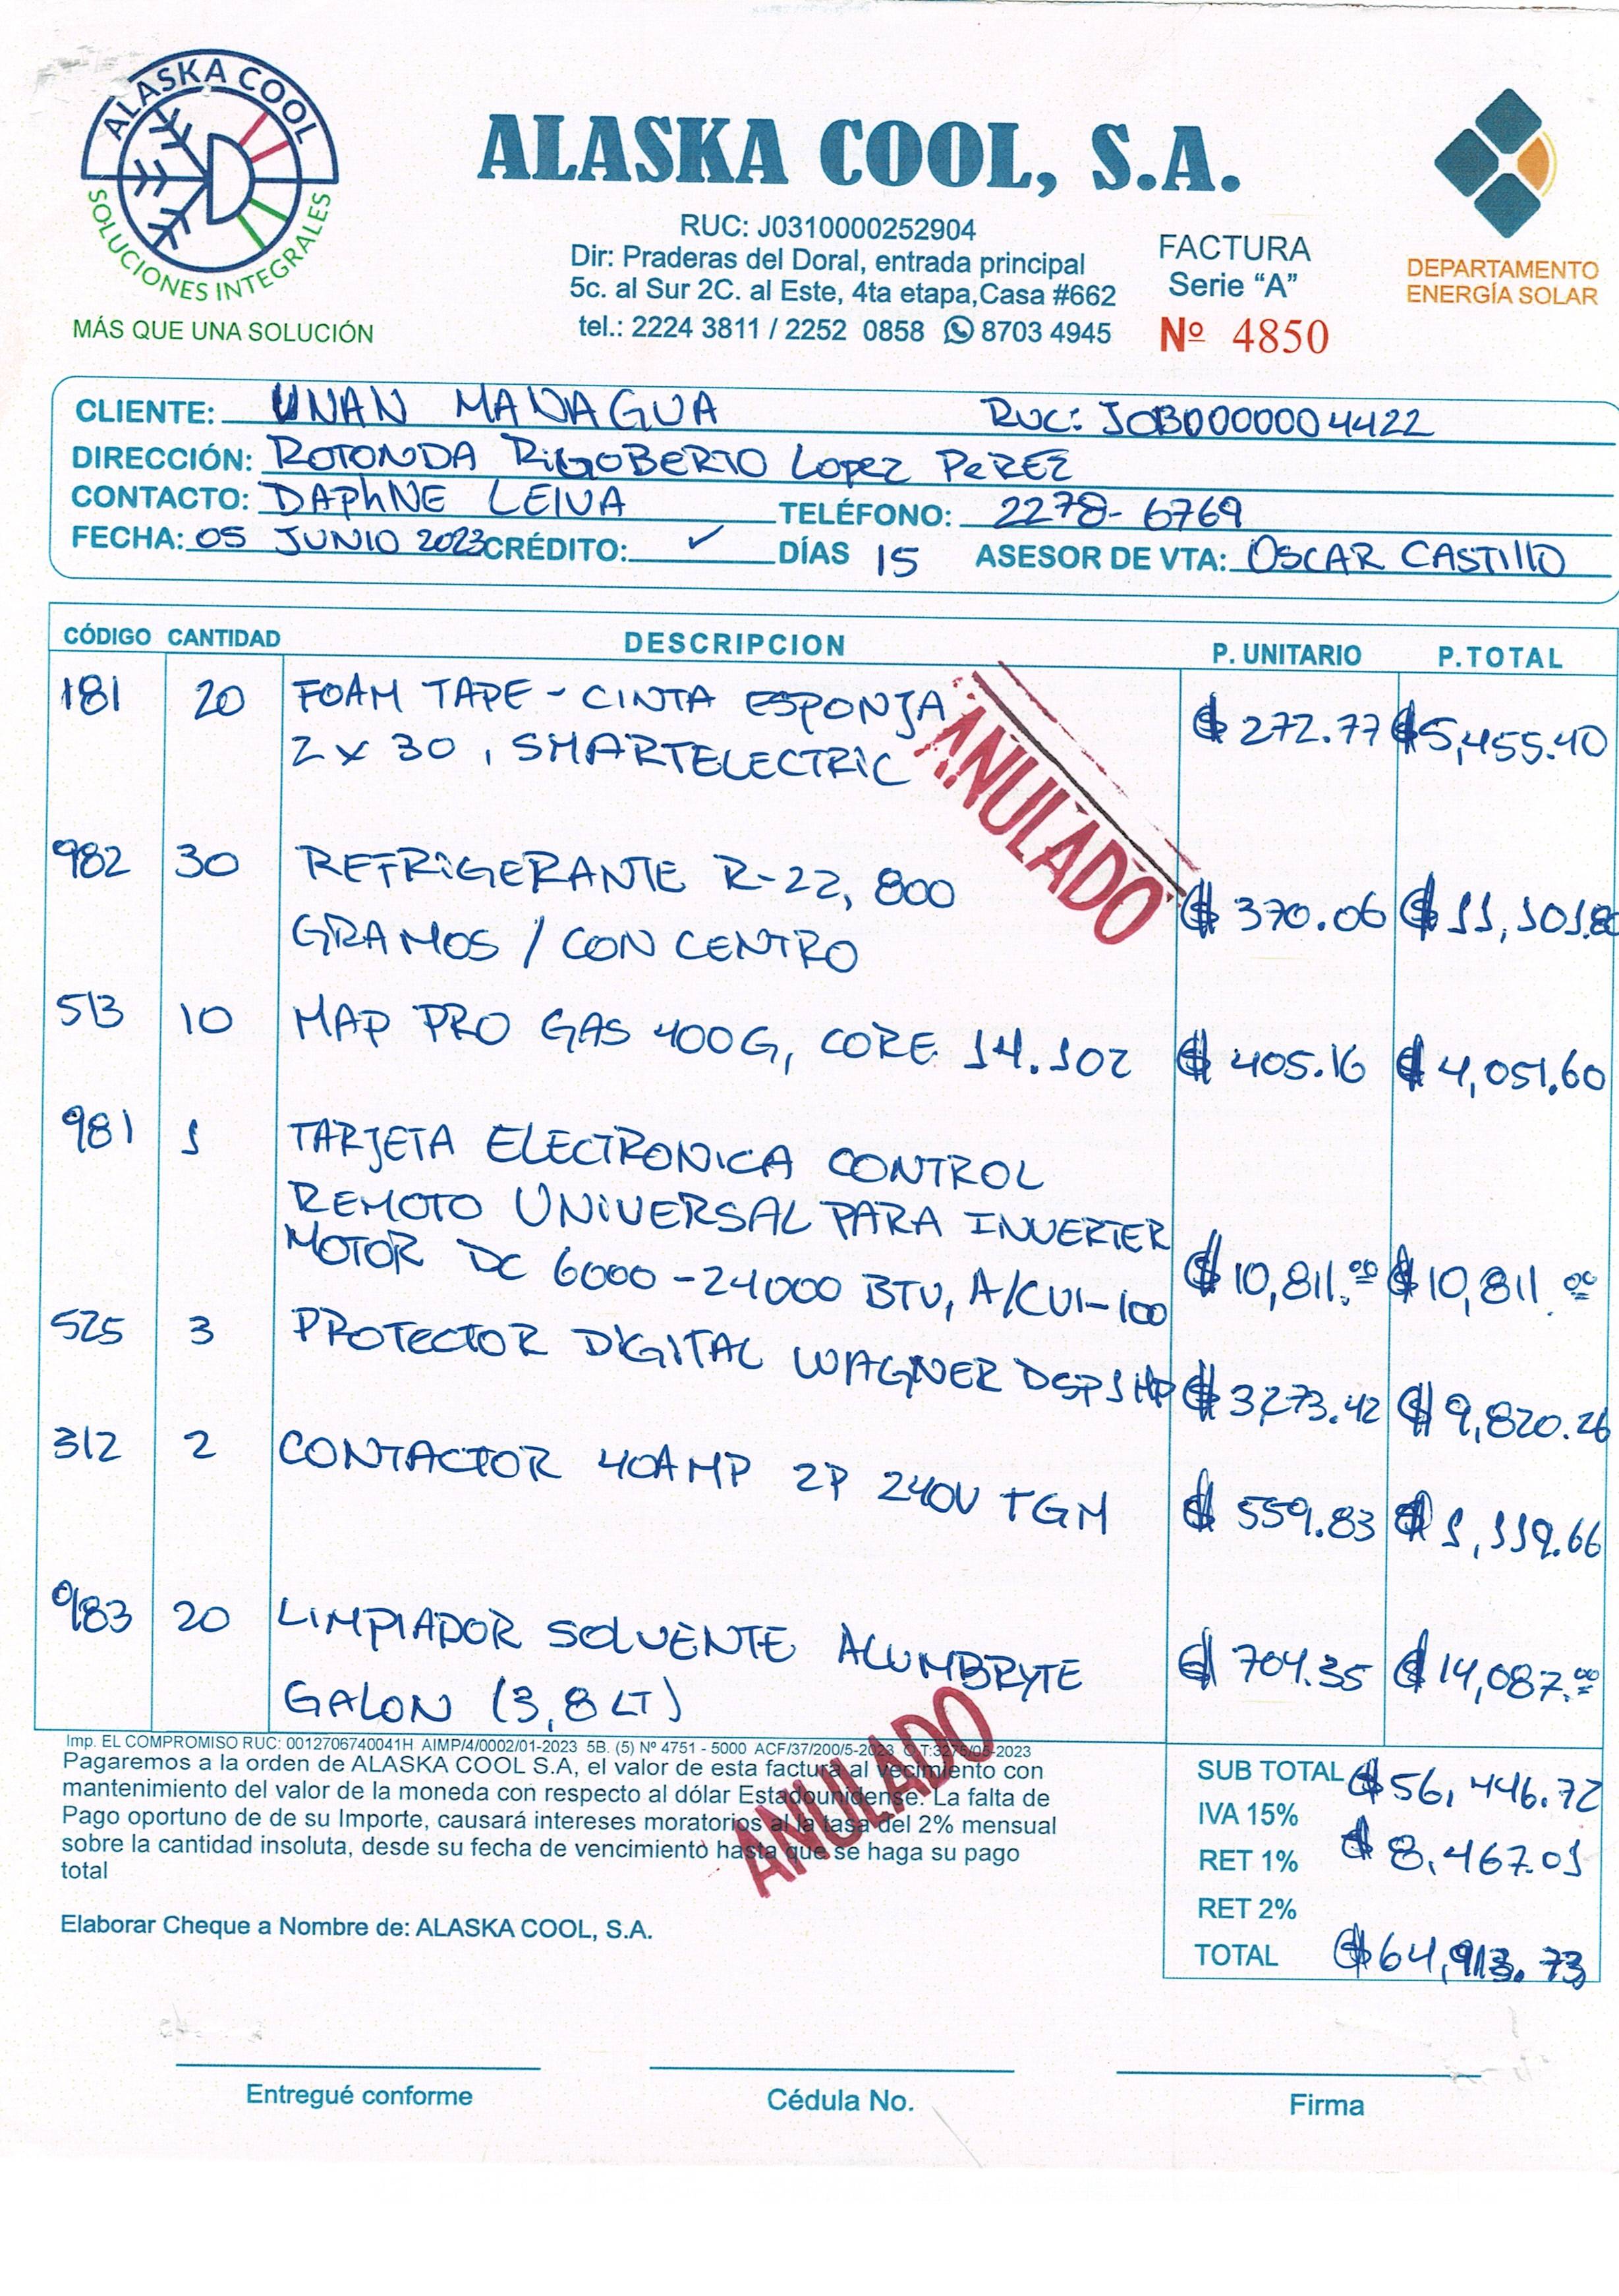 ALASKA COOL
SOLUCIONES INTEGRALES
MÁS QUE UNA SOLUCIÓN
ALASKA COOL, S.A.
RUC: J0310000252904
Dir: Praderas del Doral, entrada principal
5c. al Sur 2C. al Este, 4ta etapa,Casa #662
tel.: 2224 3811 / 2252 0858 8703 4945
FACTURA
Serie “A”
Nº 4850
DEPARTAMENTO
ENERGÍA SOLAR
CLIENTE: UNAN MANAGUA RUC: J0130000004422
DIRECCIÓN: ROTONDA RIGOBERTO LOPEZ PEREZ
CONTACTO: DAPHNE LEIVA TELÉFONO: 2278-6769
FECHA: 05 JUNIO 2023 CRÉDITO: ✓ DÍAS 15 ASESOR DE VTA: OSCAR CASTILLO
CÓDIGO CANTIDAD DESCRIPCION P. UNITARIO P.TOTAL
181 20 FOAM TAPE - CINTA ESPONJA C$ 272.77 C$5,455.40
2 x 30, SMARTELECTRIC
ANULADO
982 30 REFRIGERANTE R-22, 800 C$ 370.06 C$ 11,101.80
GRAMOS / CON CENTRO
513 10 MAP PRO GAS 400G, CORE 14.1OZ C$ 405.16 C$ 4,051.60
981 1 TARJETA ELECTRONICA CONTROL
REMOTO UNIVERSAL PARA INVERTER
MOTOR DC 6000-24000 BTU, A/CU1-100 C$ 10,811.00 C$ 10,811.00
525 3 PROTECTOR DIGITAL WAGNER DSP1HP C$ 3,273.42 C$ 9,820.26
312 2 CONTACTOR 40AMP 2P 240V TGM C$ 559.83 C$ 1,119.66
983 20 LIMPIADOR SOLVENTE ALUMBRYTE C$ 704.35 C$ 14,087.00
GALON (3,8 LT)
Imp. EL COMPROMISO RUC: 0012706740041H AIMP/4/0002/01-2023 5B. (5) Nº 4751 - 5000 ACF/37/200/5-2023 O.T:3276/05-2023
Pagaremos a la orden de ALASKA COOL S.A, el valor de esta factura al vecimiento con
mantenimiento del valor de la moneda con respecto al dólar Estadounidense. La falta de
Pago oportuno de de su Importe, causará intereses moratorios al la tasa del 2% mensual
sobre la cantidad insoluta, desde su fecha de vencimiento hasta que se haga su pago
total
ANULADO
Elaborar Cheque a Nombre de: ALASKA COOL, S.A.
SUB TOTAL C$56,446.72
IVA 15% C$ 8,467.01
RET 1%
RET 2%
TOTAL C$64,913.73
Entregué conforme
Cédula No.
Firma